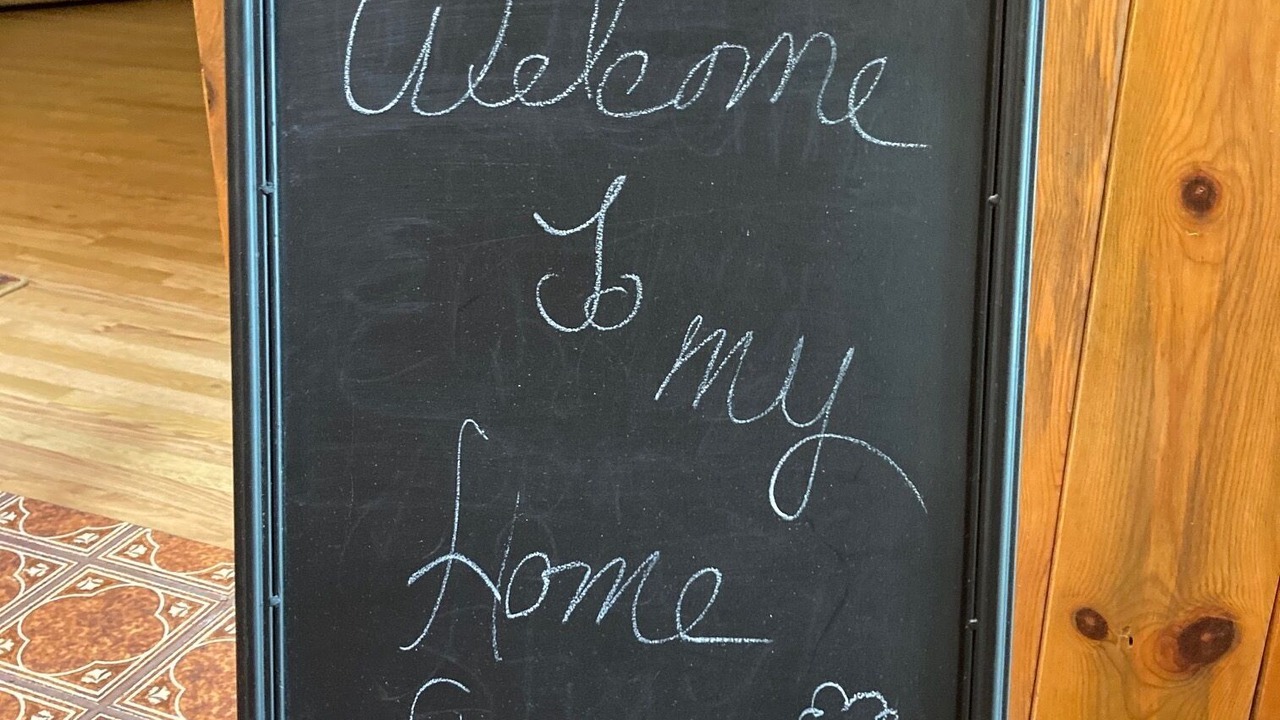 Welcome
To
my
Home